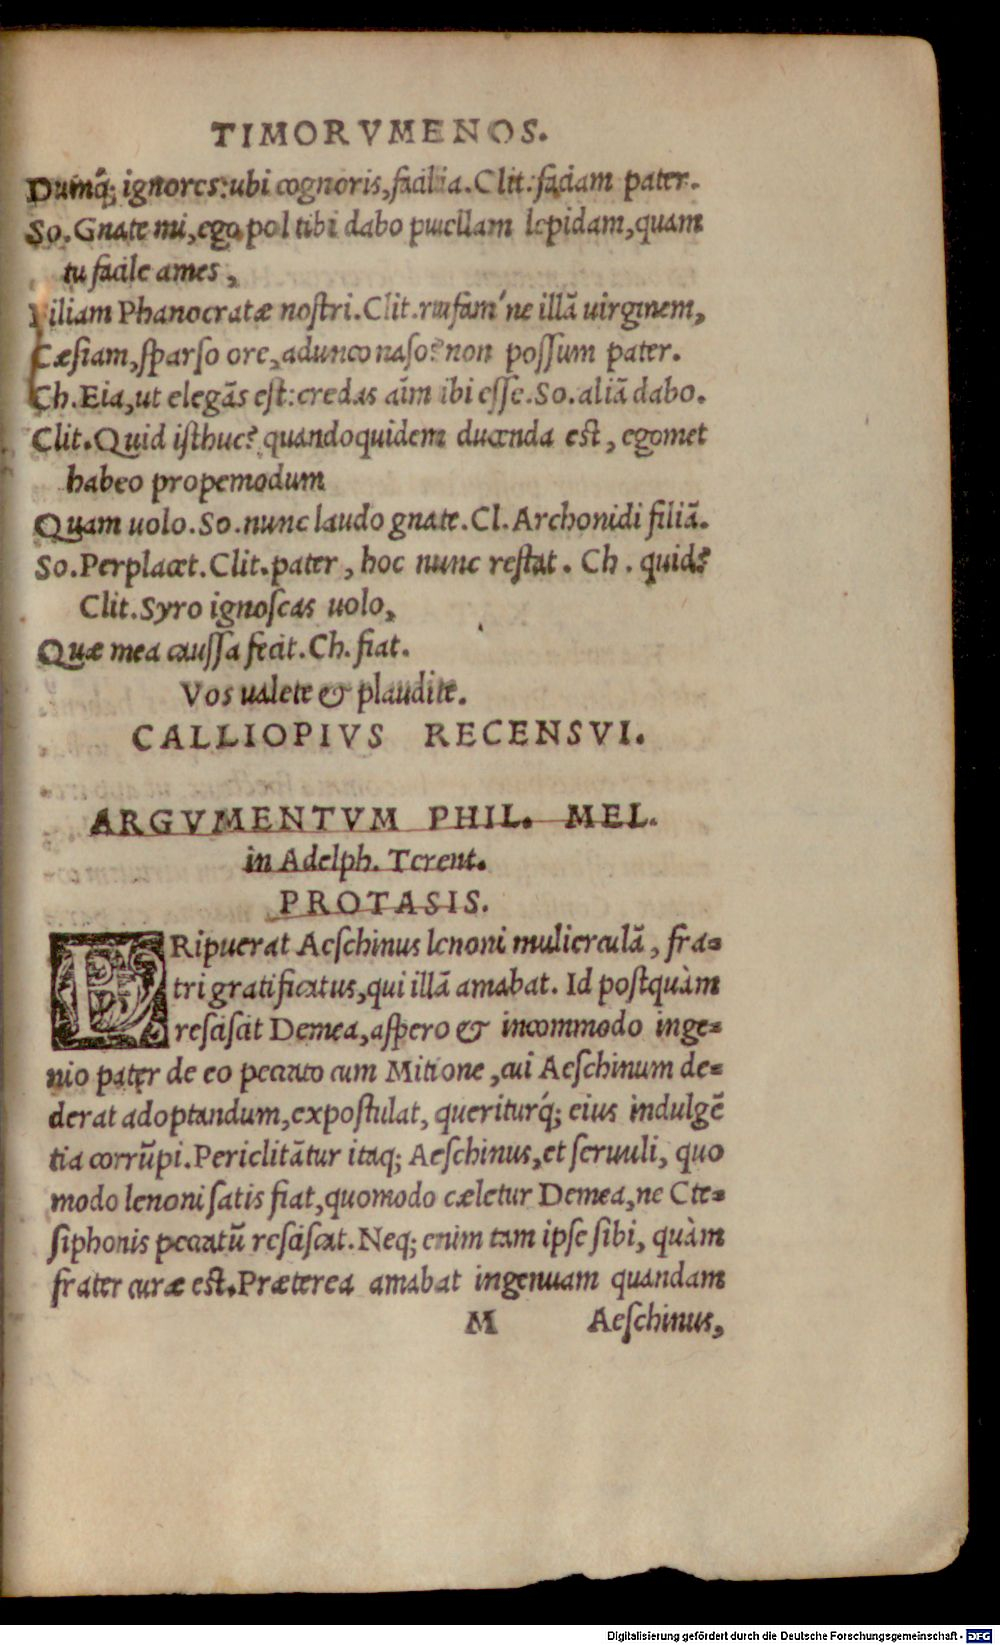 TIMORVMENOS.
Dumq́; ignores: ubi cognoris, facilia. Clit. faciam pater.
So. Gnate mi, ego pol tibi dabo puellam lepidam, quam
tu facile ames,
Filiam Phanocratæ nostri. Clit. rufam'ne illā uirginem,
Cæsiam, sparso ore, adunco naso? non possum pater.
Ch. Eia, ut elegās est: credas aīm ibi esse. So. aliā dabo.
Clit. Quid isthuc? quandoquidem ducenda est, egomet
habeo propemodum
Quam uolo. So. nunc laudo gnate. Cl. Archonidi filiā.
So. Perplacet. Clit. pater, hoc nunc restat. Ch. quid?
Clit. Syro ignoscas uolo,
Quæ mea caussa fecit. Ch. fiat.
Vos ualete & plaudite.
CALLIOPIVS RECENSVI.
ARGVMENTVM PHIL. MEL.
in Adelph. Terent.
PROTASIS.
ERipuerat Aeschinus lenoni mulierculā, fra-
tri gratificatus, qui illā amabat. Id postquàm
resciscit Demea, aspero & incommodo inge-
nio pater de eo peccato cum Mitione, cui Aeschinum de-
derat adoptandum, expostulat, queriturq́; eius indulgē
tia corrūpi. Periclitātur itaq; Aeschinus, et seruuli, quo
modo lenoni satis fiat, quomodo cæletur Demea, ne Cte-
siphonis peccatū resciscat. Neq; enim tam ipse sibi, quàm
frater curæ est. Præterea amabat ingenuam quandam
M Aeschinus,
Digitalisierung gefördert durch die Deutsche Forschungsgemeinschaft - DFG